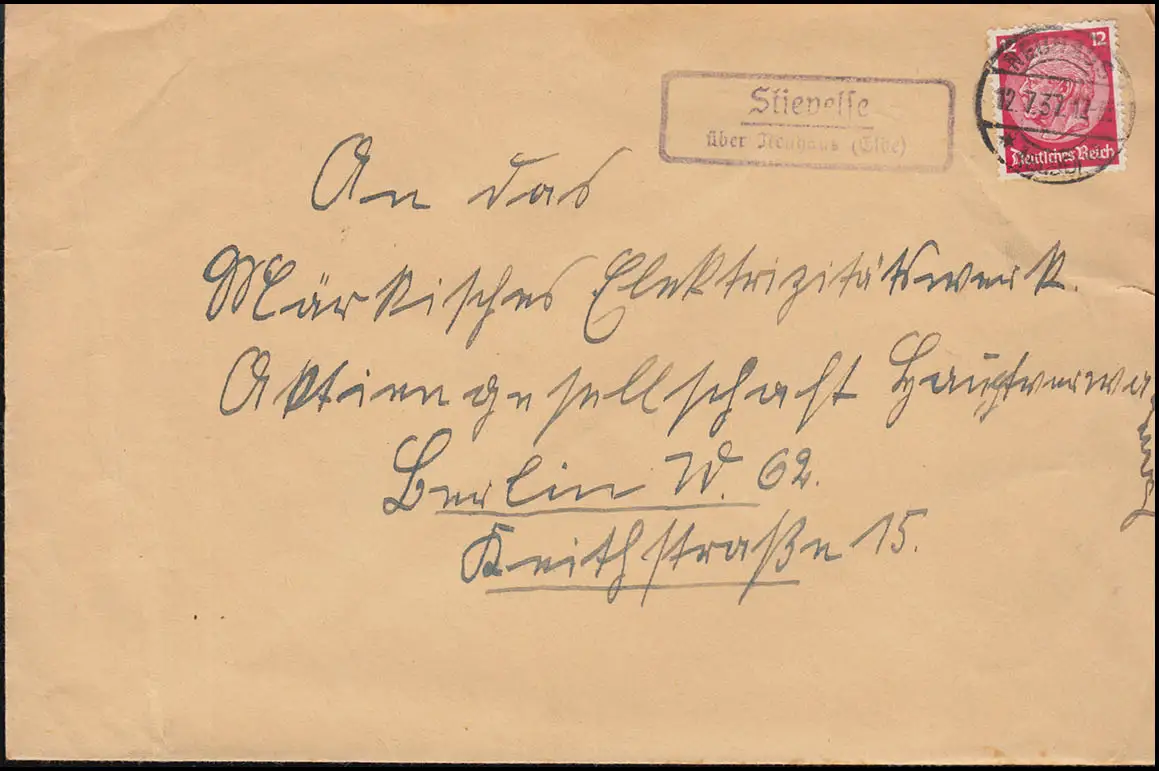 12 12
12.7.37.12
Deutsches Reich
Stiepelse
über Neuhaus (Elbe)
An das
Märkisches Elektrizitätswerk.
Aktiengesellschaft Hauptverwaltung
Berlin W. 62.
Keithstraße 15.